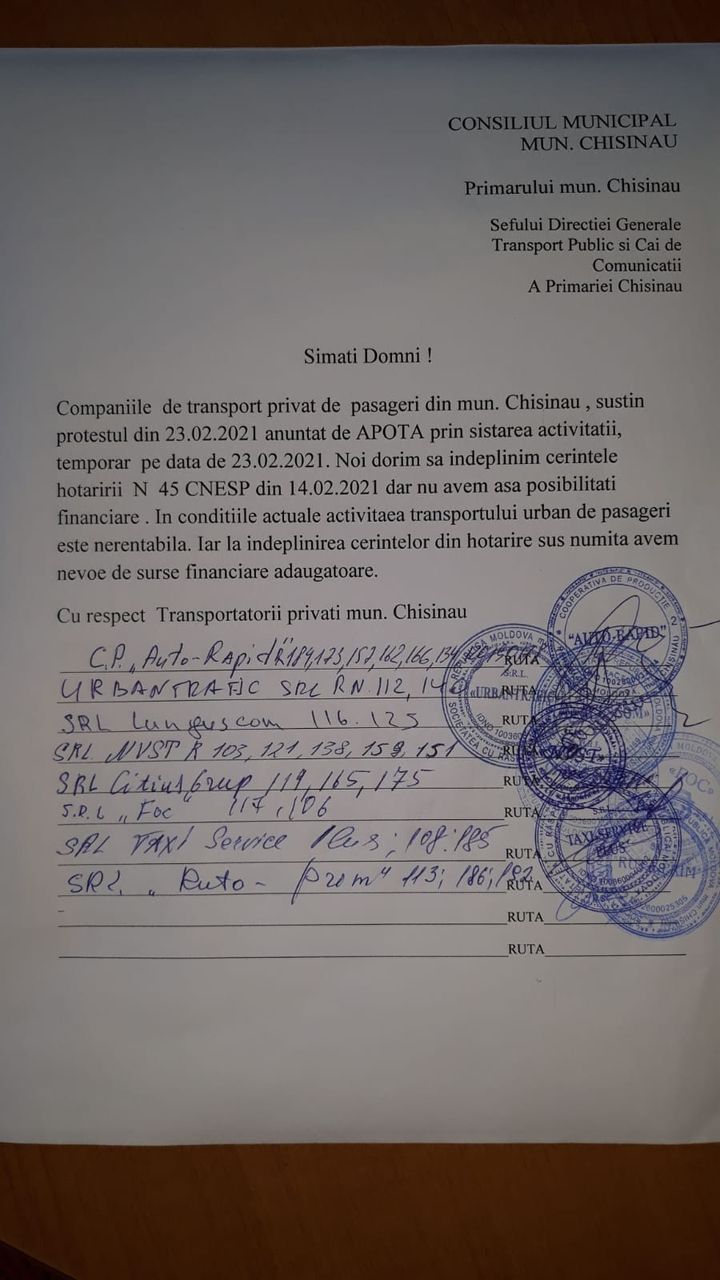 CONSILIUL MUNICIPAL
MUN. CHISINAU
Primarului mun. Chisinau
Sefului Directiei Generale
Transport Public si Cai de
Comunicatii
A Primariei Chisinau
Simati Domni !
Companiile de transport privat de pasageri din mun. Chisinau , sustin
protestul din 23.02.2021 anuntat de APOTA prin sistarea activitatii,
temporar pe data de 23.02.2021. Noi dorim sa indeplinim cerintele
hotaririi N 45 CNESP din 14.02.2021 dar nu avem asa posibilitati
financiare . In conditiile actuale activitaea transportului urban de pasageri
este nerentabila. Iar la indeplinirea cerintelor din hotarire sus numita avem
nevoe de surse financiare adaugatoare.
Cu respect Transportatorii privati mun. Chisinau
C.P. „Auto-Rapid" RUTA
URBANTRAFIC SRL RN. 112, RUTA
SRL Lunguscom 116. 125 RUTA
SRL NVST R 103, 121, 138, 159, 151 RUTA
SRL Citius Grup 119, 165, 175 RUTA
S.R.L „Foc" 117, 106 RUTA
SRL TAXI Service Plus; 108. 185 RUTA
SRL „Ruto-Prim" 113; 186; 182 RUTA
RUTA
RUTA
COOPERATIVA DE PRODUCTIE
"AUTO-RAPID"
REPUBLICA MOLDOVA
S.R.L.
TAXI-SERVICE
PLUS
«FOC»